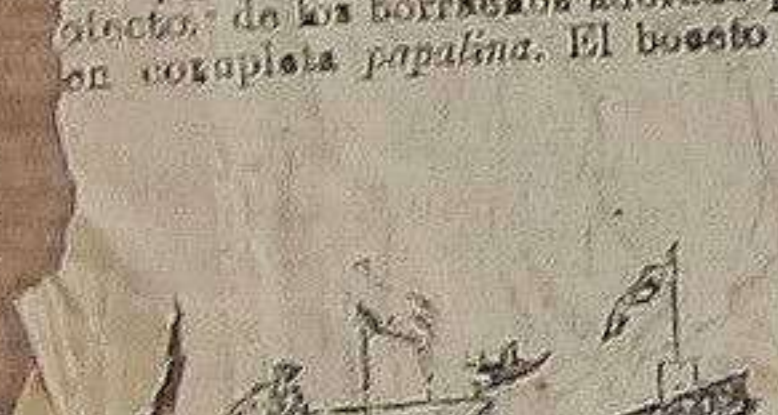 efecto, de los borrachos
en completa papalina. El boceto